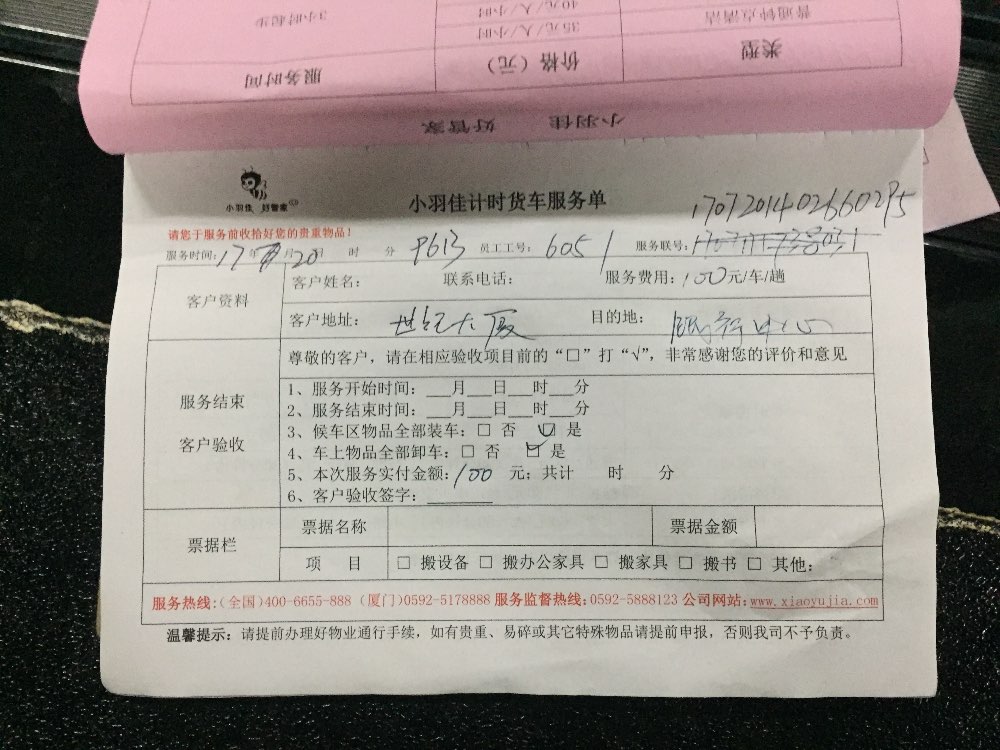 3小时起步 40元/人/小时 普通钟点清洁
35元/人/小时
服务时间 价格（元） 类型
小羽佳 好管家
小羽佳 好管家
小羽佳计时货车服务单
1707201402660295
请您于服务前收拾好您的贵重物品！
服务时间：17年 月20日 时 分 9613 员工工号：6051 服务联号：
客户资料 客户姓名： 联系电话： 服务费用：100元/车/趟
客户地址：世纪大厦 目的地：
尊敬的客户，请在相应验收项目前的“□”打“√”，非常感谢您的评价和意见
服务结束 客户验收
1、服务开始时间：___月___日___时___分
2、服务结束时间：___月___日___时___分
3、候车区物品全部装车：□ 否 ☑ 是
4、车上物品全部卸车：□ 否 ☑ 是
5、本次服务实付金额：100 元；共计 时 分
6、客户验收签字：________
票据栏 票据名称 票据金额
项 目 □ 搬设备 □ 搬办公家具 □ 搬家具 □ 搬书 □ 其他：
服务热线:(全国)400-6655-888 (厦门)0592-5178888 服务监督热线:0592-5888123 公司网站:www.xiaoyujia.com
温馨提示：请提前办理好物业通行手续，如有贵重、易碎或其它特殊物品请提前申报，否则我司不予负责。